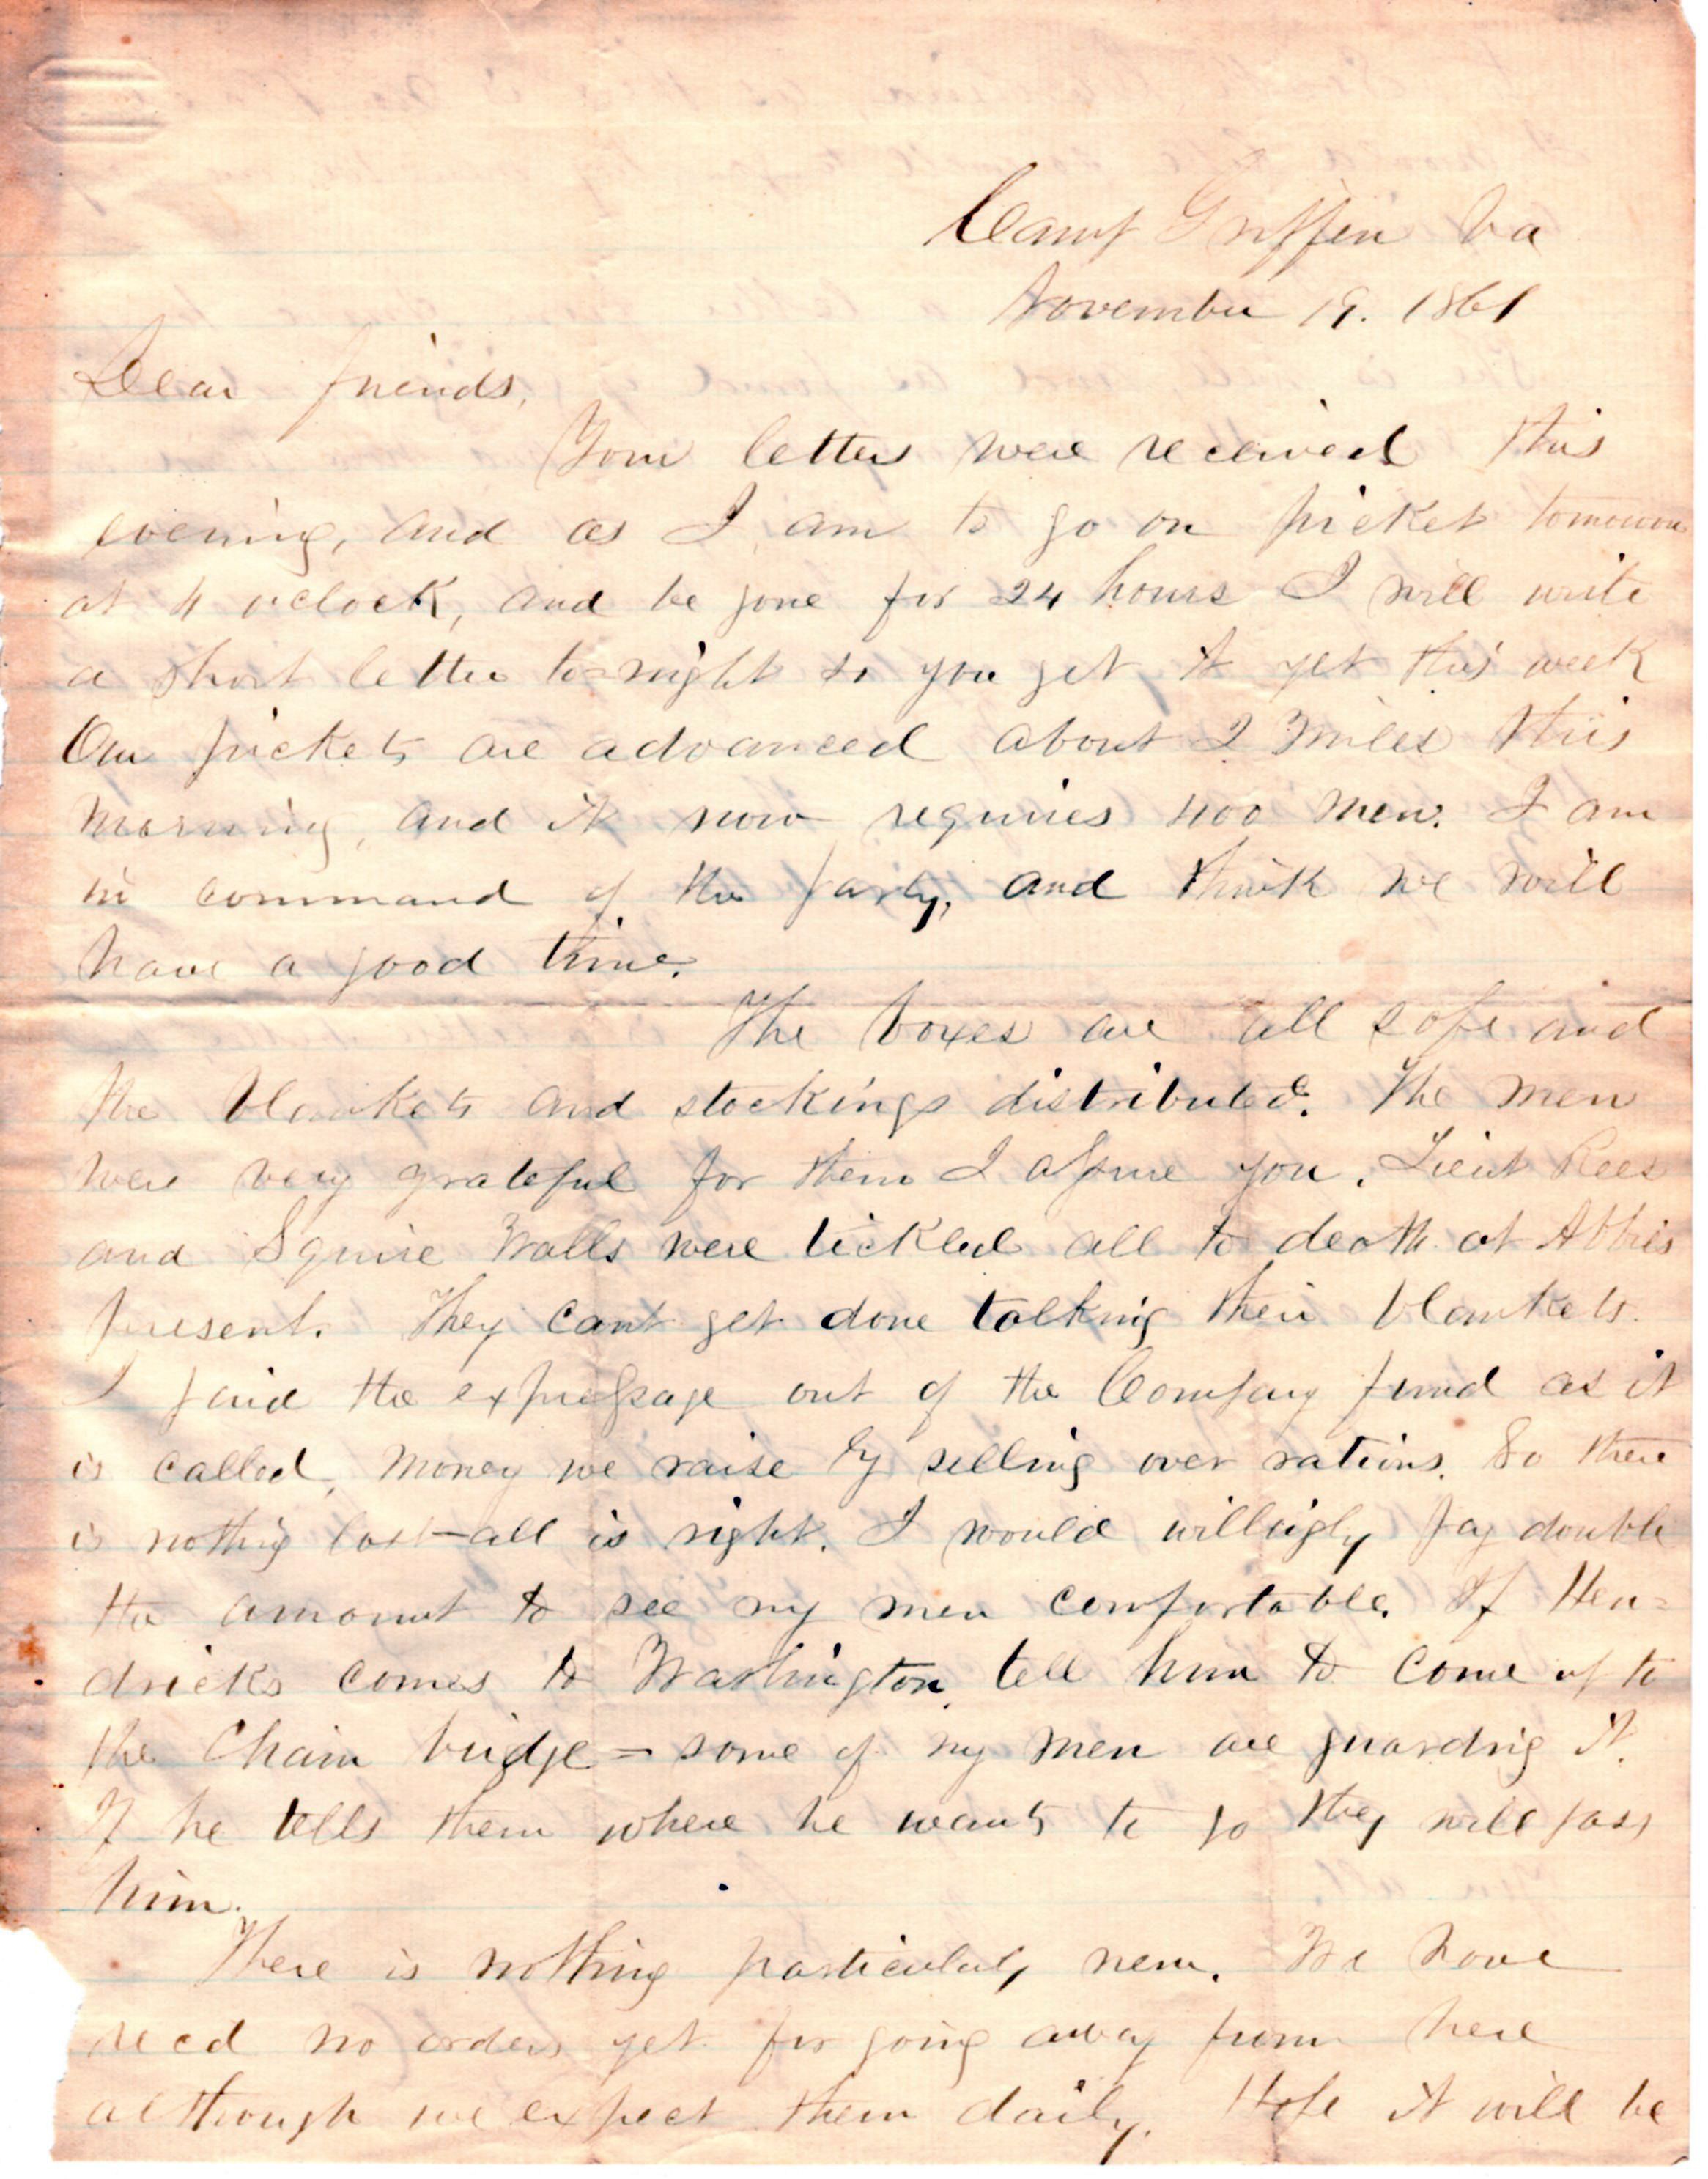 Camp Griffin Va
November 19. 1861
Dear friends,
Your letters were received this
evening, and as I am to go on picket tomorrow
at 4 o'clock, and be gone for 24 hours I will write
a short letter to-night so you get it yet this week
Our pickets are advanced about 2 miles this
morning, and it now requires 400 men. I am
in command of the party, and think we will
have a good time.
The boxes are all safe and
the blankets and stockings distributed. The men
were very grateful for them I assure you. Lieut Rees
and Squire Walls were tickled all to death at Abbies
present. They cant get done talking their blankets.
I paid the expressage out of the Company fund as it
is called, money we raise by selling over rations. So there
is nothing lost—all is right. I would willingly pay double
the amount to see my men comfortable. If Hen=
dricks comes to Washington, tell him to come up to
the Chain bridge = some of my men are guarding it.
If he tells them where he wants to go they will pass
him.
There is nothing particularly new. We have
recd no orders yet for going away from here
although we expect them daily. Hope it will be